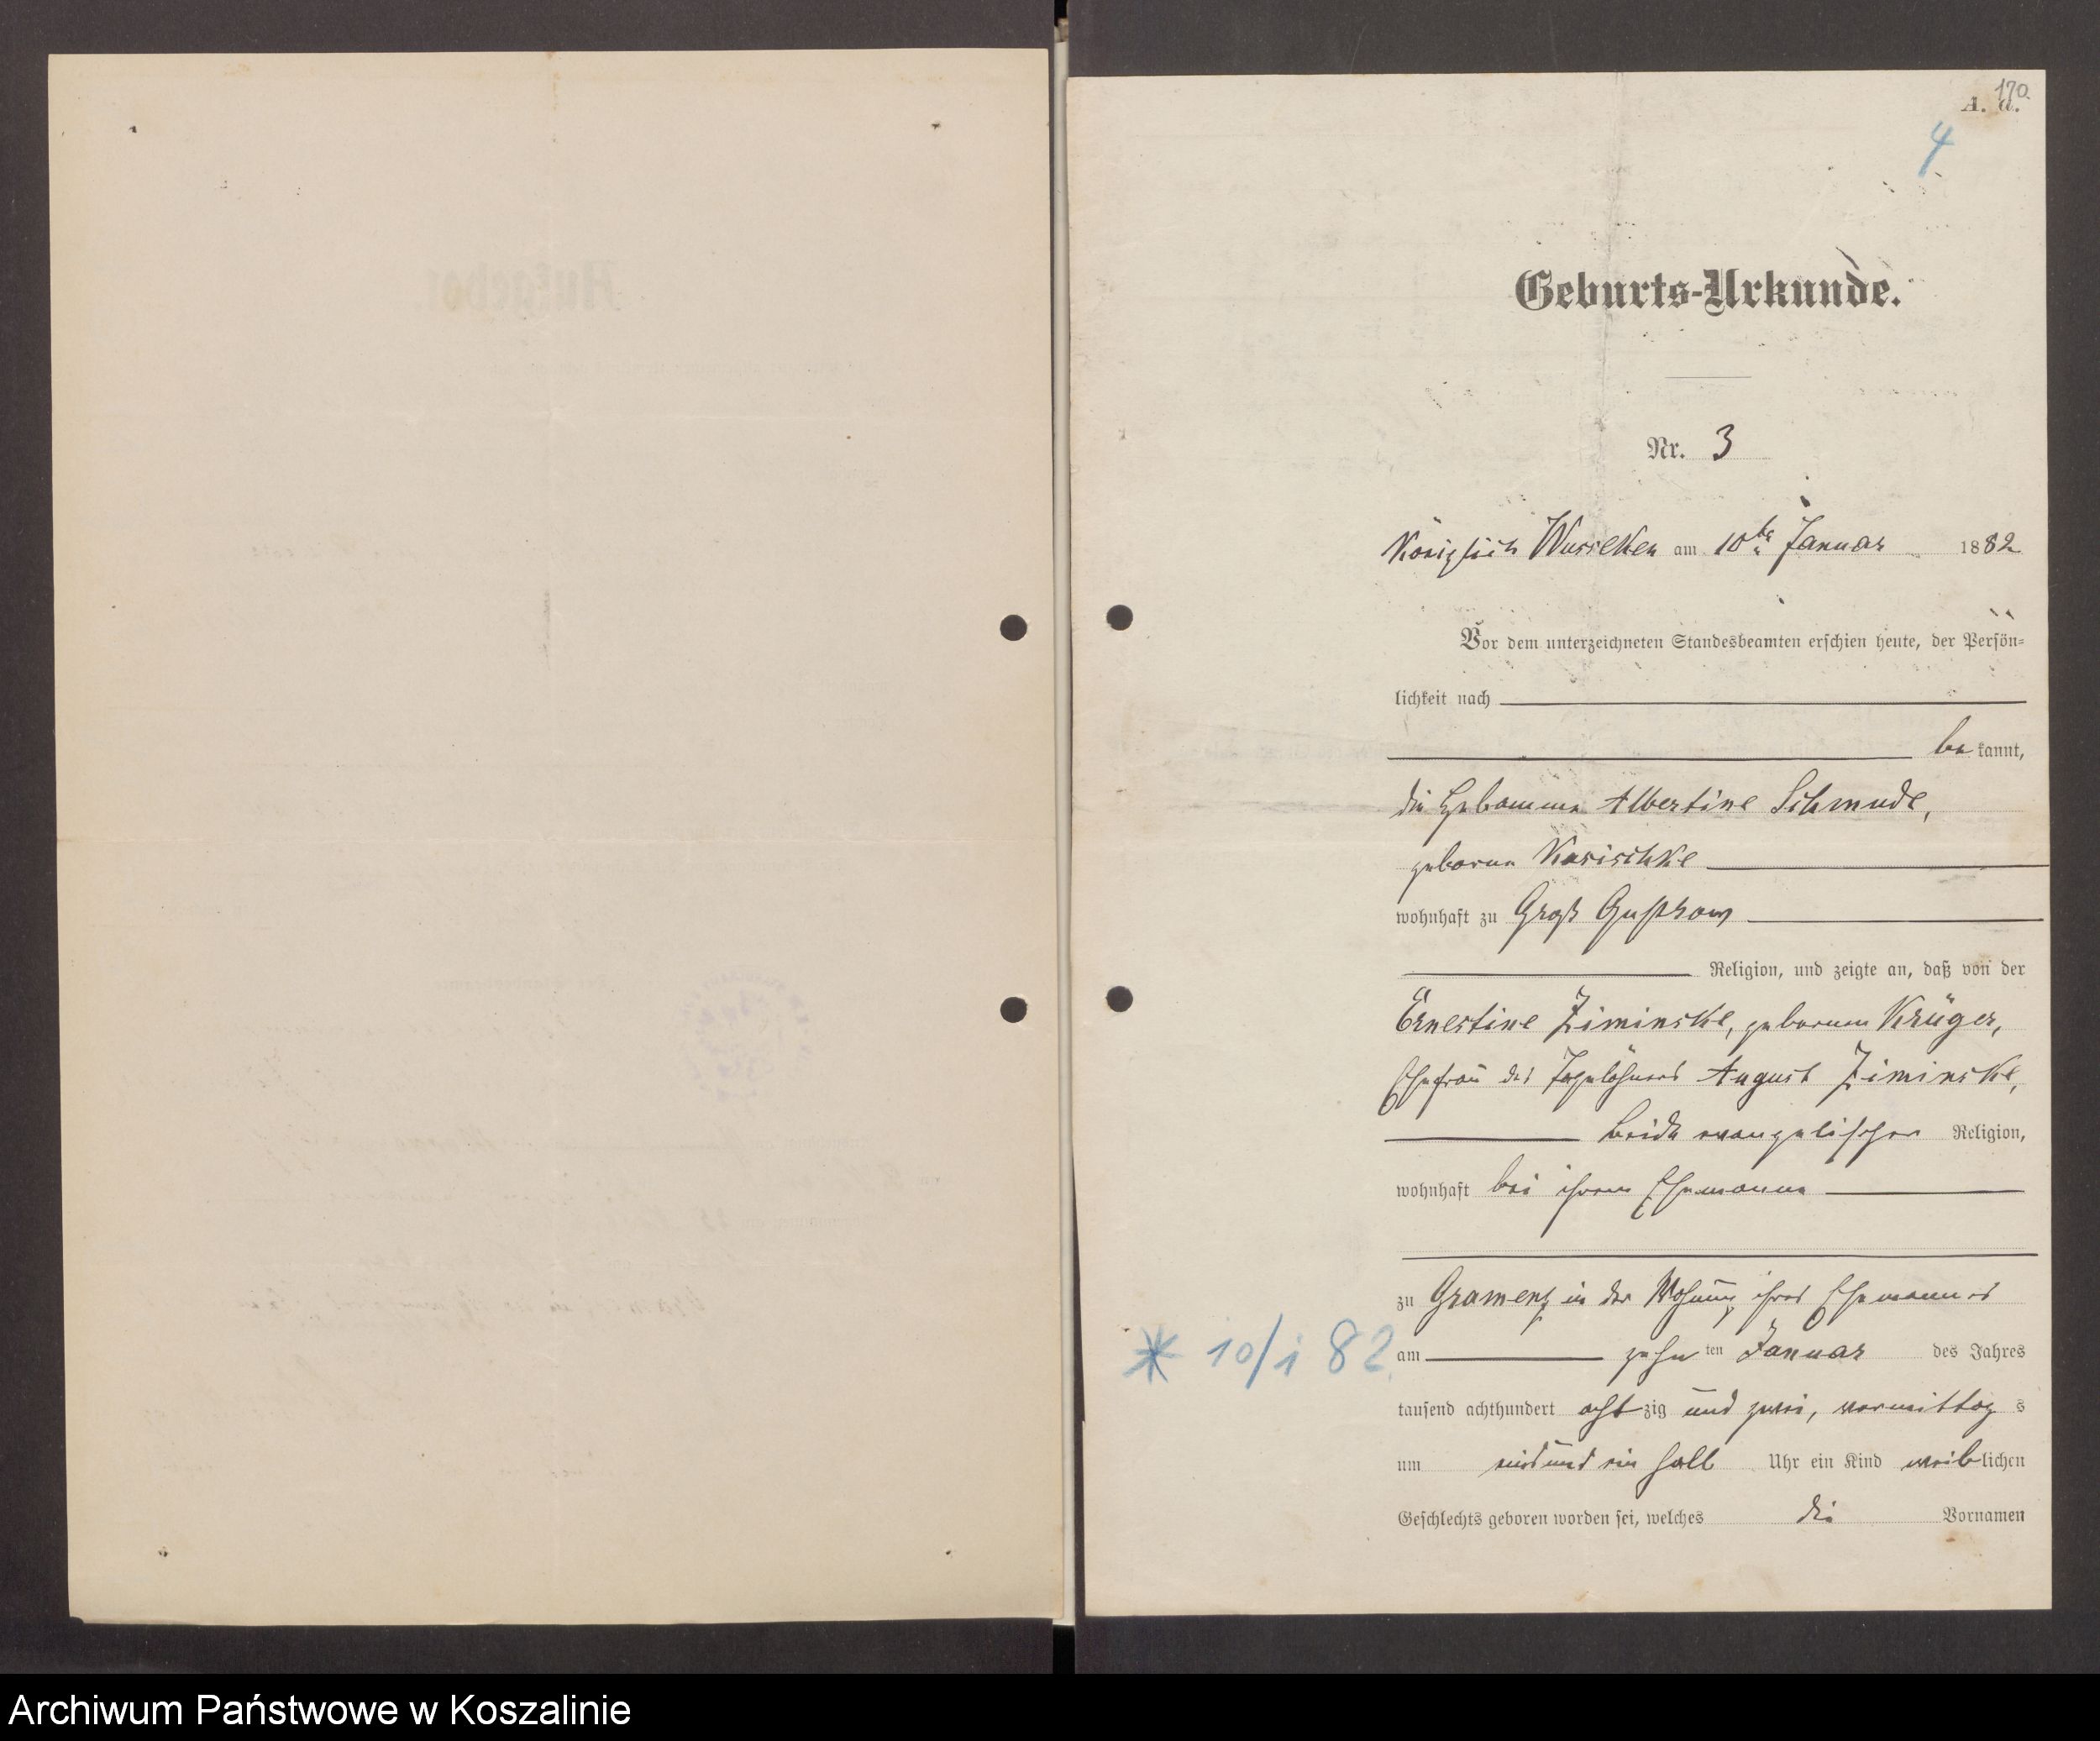 170.
A. a.
4
Geburts-Urkunde.
Nr. 3
Königlich Wusseken am 10te Januar 1882
Vor dem unterzeichneten Standesbeamten erschien heute, der Persön-
lichkeit nach
bekannt,
die Hebamme Albertine Schmude,
geborne Karischke
wohnhaft zu Groß
Religion, und zeigte an, daß von der
Ernestine Ziminske, geborenen Krüger,
Ehefrau des Tagelöhners August Ziminske,
beide evangelischer Religion,
wohnhaft bei ihrem Ehemanne
zu Gramenz in der Wohnung ihres Ehemannes
* 10/1 82 am zehnten Januar des Jahres
tausend achthundert achtzig und zwei, vormittags
um eins und ein halb Uhr ein Kind weiblichen
Geschlechts geboren worden sei, welches die Vornamen
Archiwum Państwowe w Koszalinie